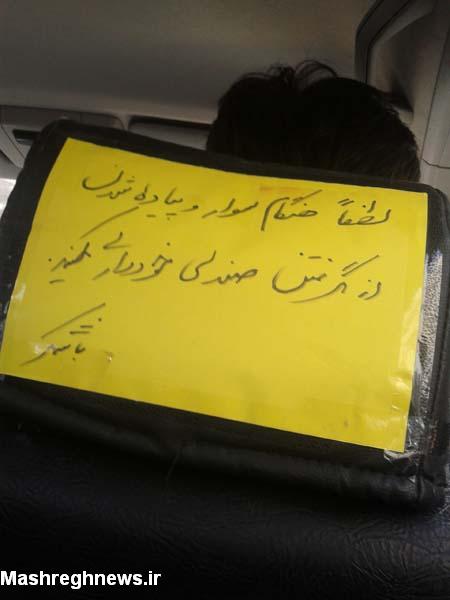 لطفاً هنگام سوار و پیاده شدن
از گرفتن صندلی خودداری کنید
با تشکر
Mashreghnews.ir